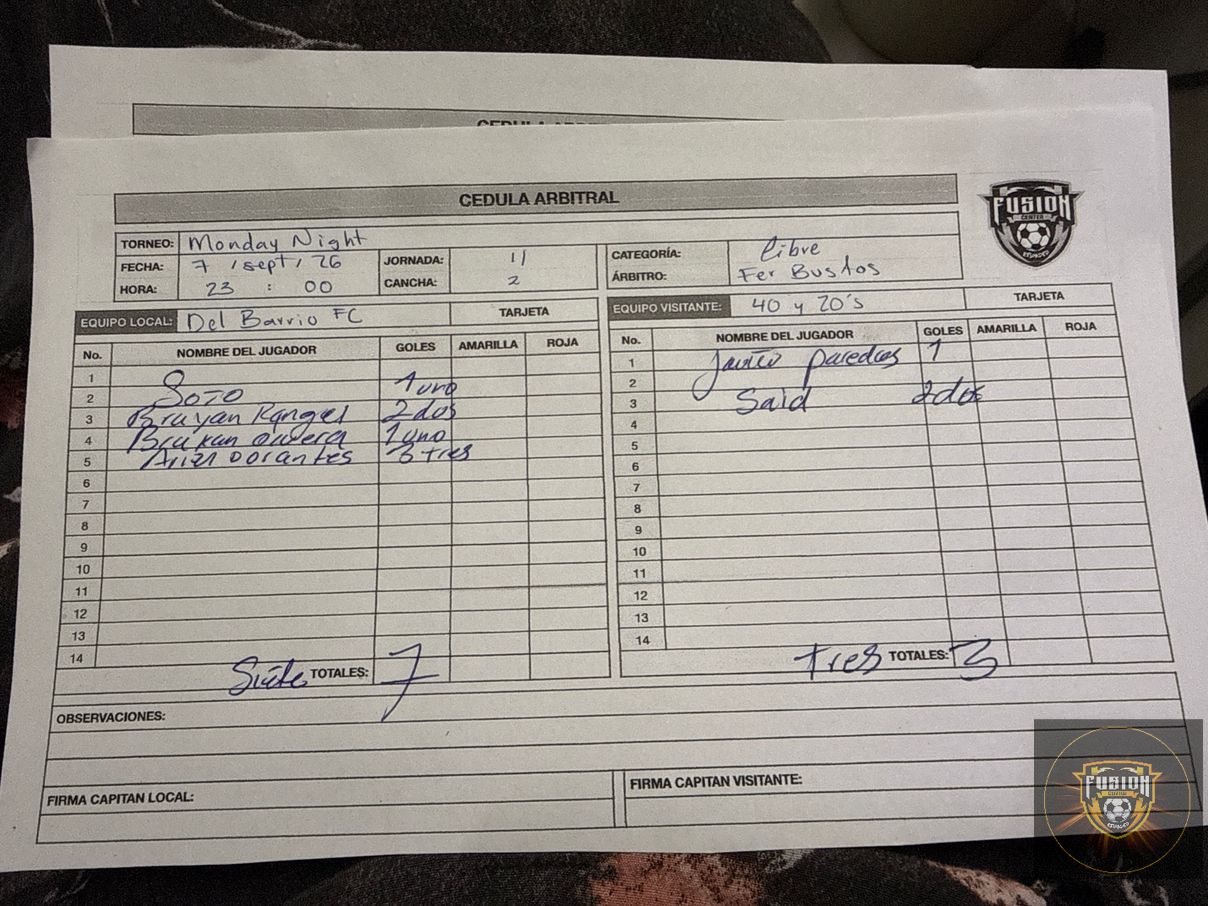 CEDULA ARBITRAL
FUSION
CENTER
TORNEO: Monday Night
FECHA: 7 / sept / 26
HORA: 23 : 00
JORNADA: 11
CANCHA: 2
CATEGORÍA: libre
ÁRBITRO: Fer Bustos
EQUIPO LOCAL: Del Barrio FC
TARJETA
No. NOMBRE DEL JUGADOR GOLES AMARILLA ROJA
1
2 Soto 1 uno
3 Brayan Rangel 2 dos
4 1 uno
5 Dorantes 3 tres
6
7
8
9
10
11
12
13
14
Siete TOTALES: 7
EQUIPO VISITANTE: 40 y 20's
TARJETA
No. NOMBRE DEL JUGADOR GOLES AMARILLA ROJA
1 Paredes 1
2
3 Said 2 dos
4
5
6
7
8
9
10
11
12
13
14
tres TOTALES: 3
OBSERVACIONES:
FIRMA CAPITAN LOCAL:
FIRMA CAPITAN VISITANTE:
FUSION
CENTER